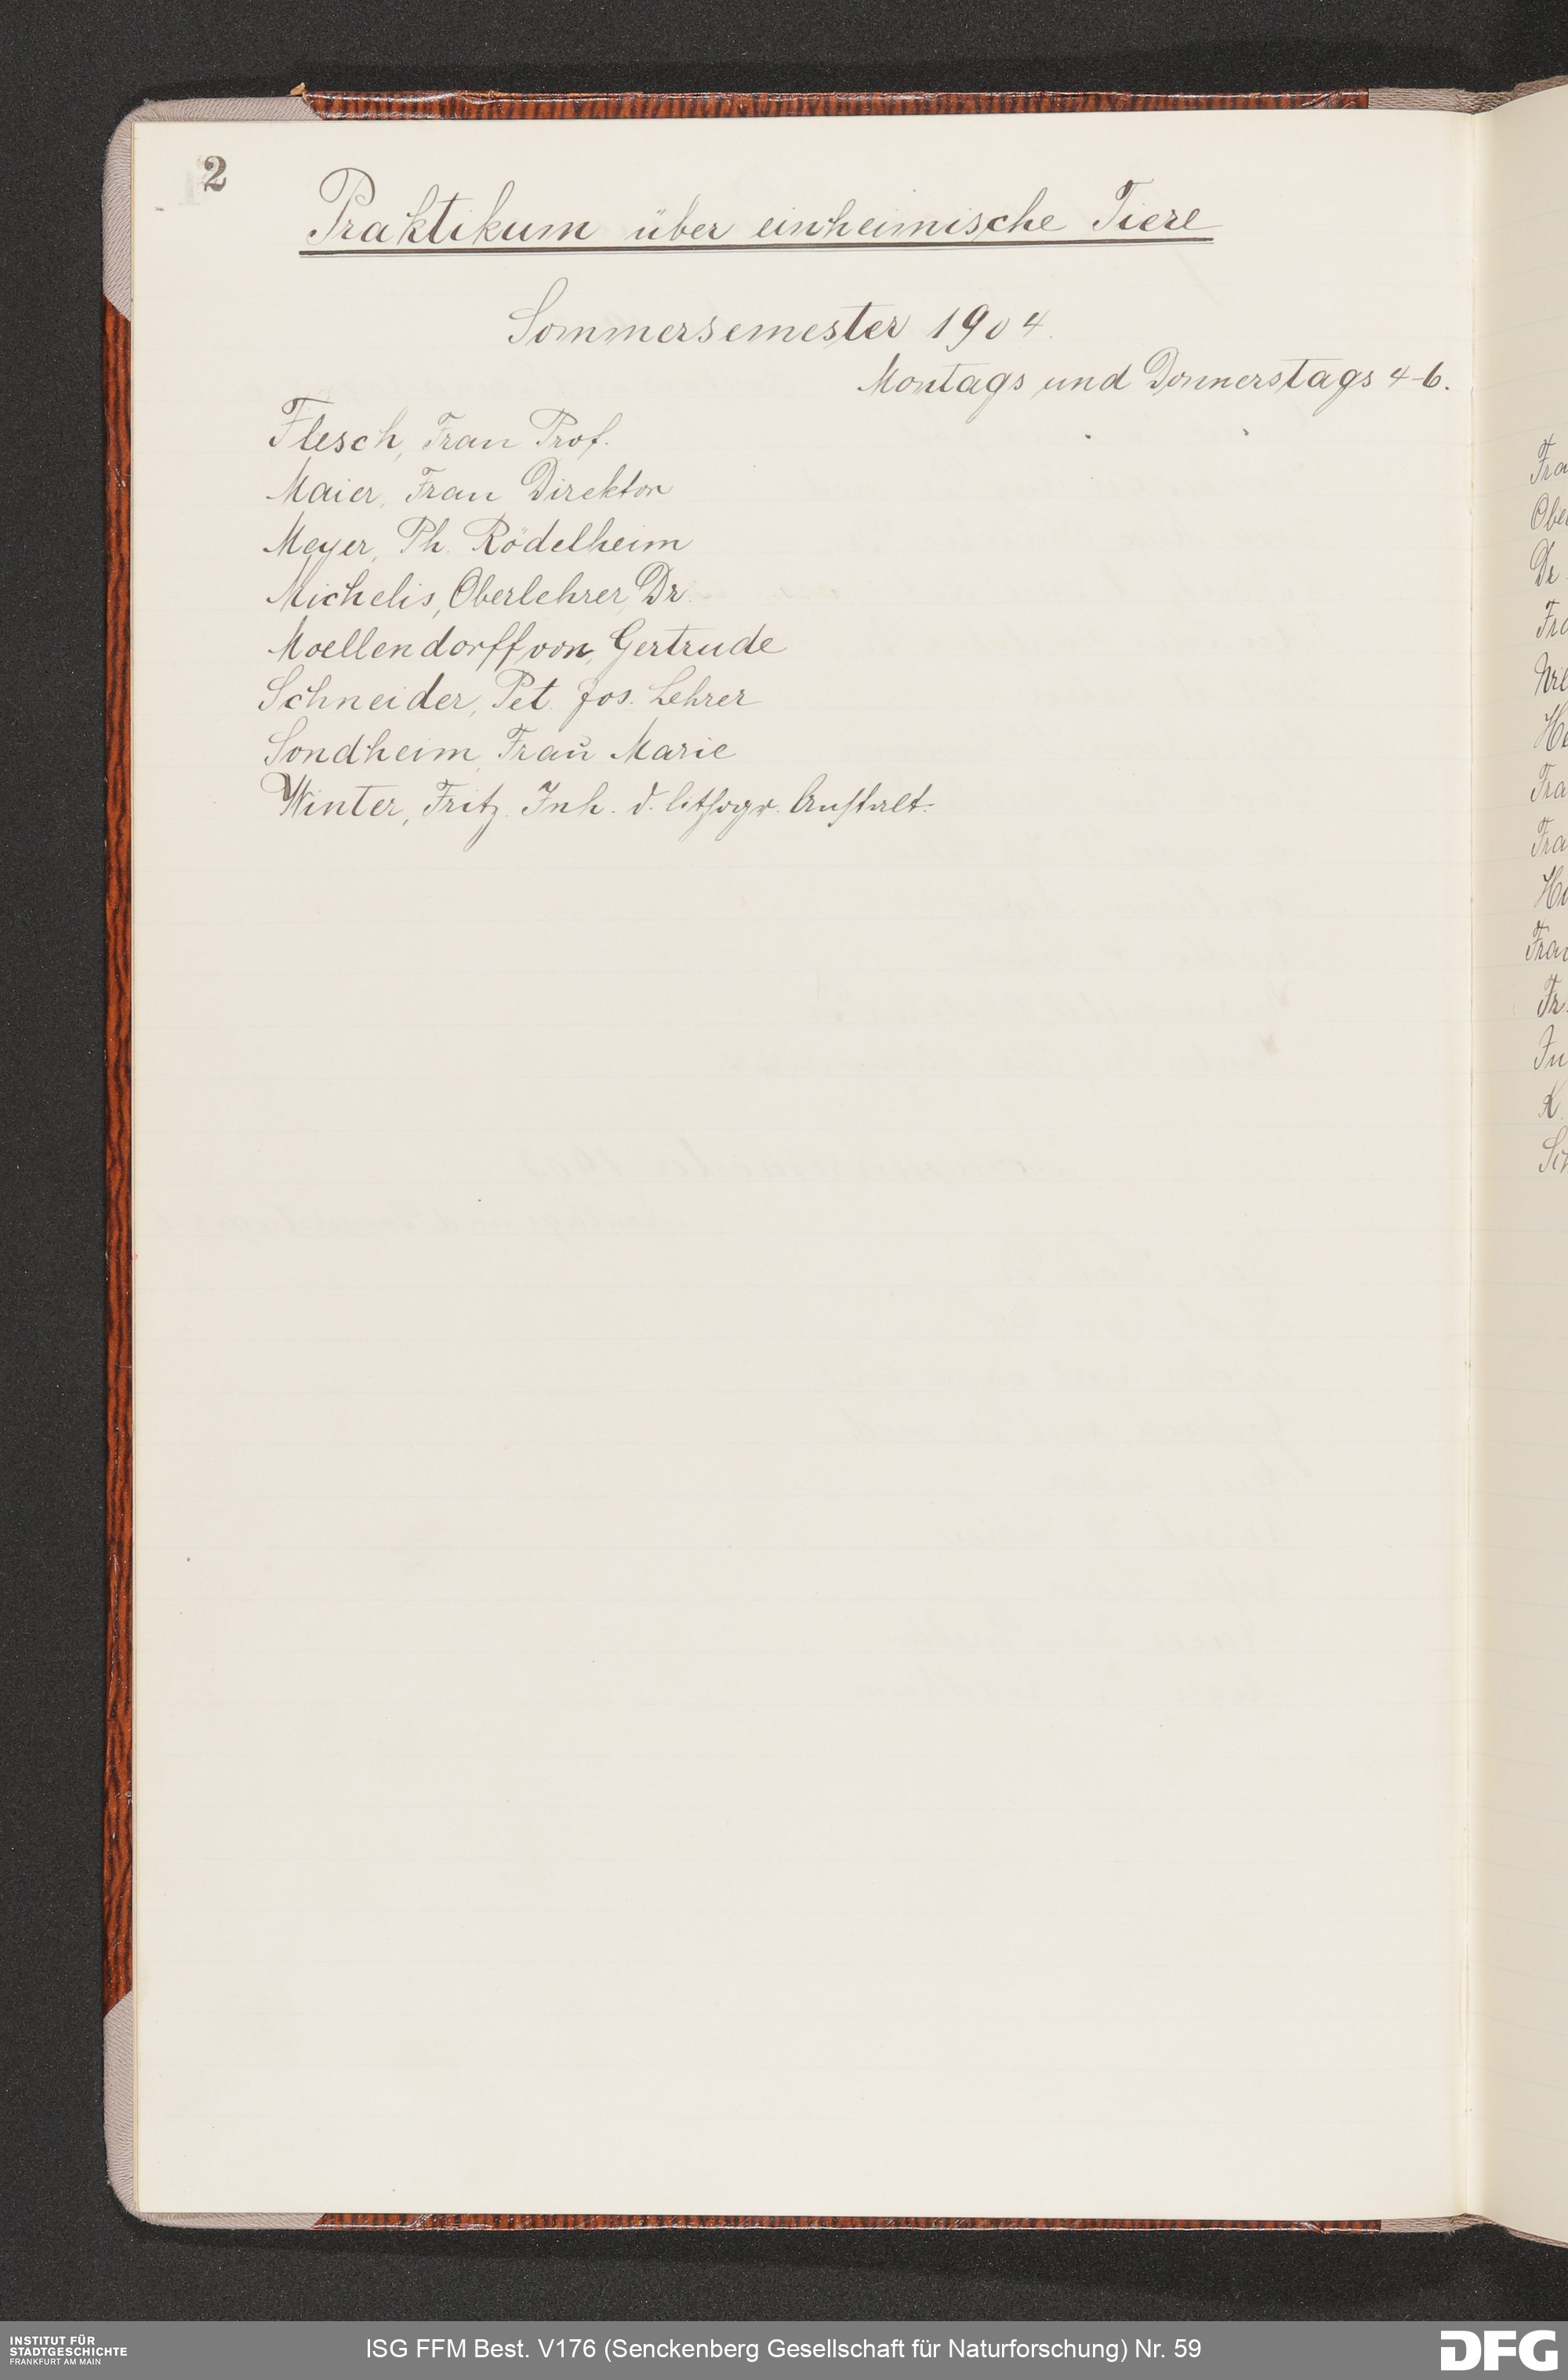 2
Praktikum über einheimische Tiere
Sommersemester 1904.
Montags und Donnerstags 4-6.
Flesch, Frau Prof.
Maier, Frau Direktor
Meyer, Ph. Rödelheim
Michelis, Oberlehrer, Dr.
Moellendorff von, Gertrude
Schneider, Pet. Jos. Lehrer
Sondheim, Frau Marie
Winter, Fritz. Inh. d. lithogr. Anstalt.
Fra
Ober
Dr
Fra
He
Fra
Fra
Fra
Fr.
K.
Sch
INSTITUT FÜR
STADTGESCHICHTE
FRANKFURT AM MAIN
ISG FFM Best. V176 (Senckenberg Gesellschaft für Naturforschung) Nr. 59
DFG